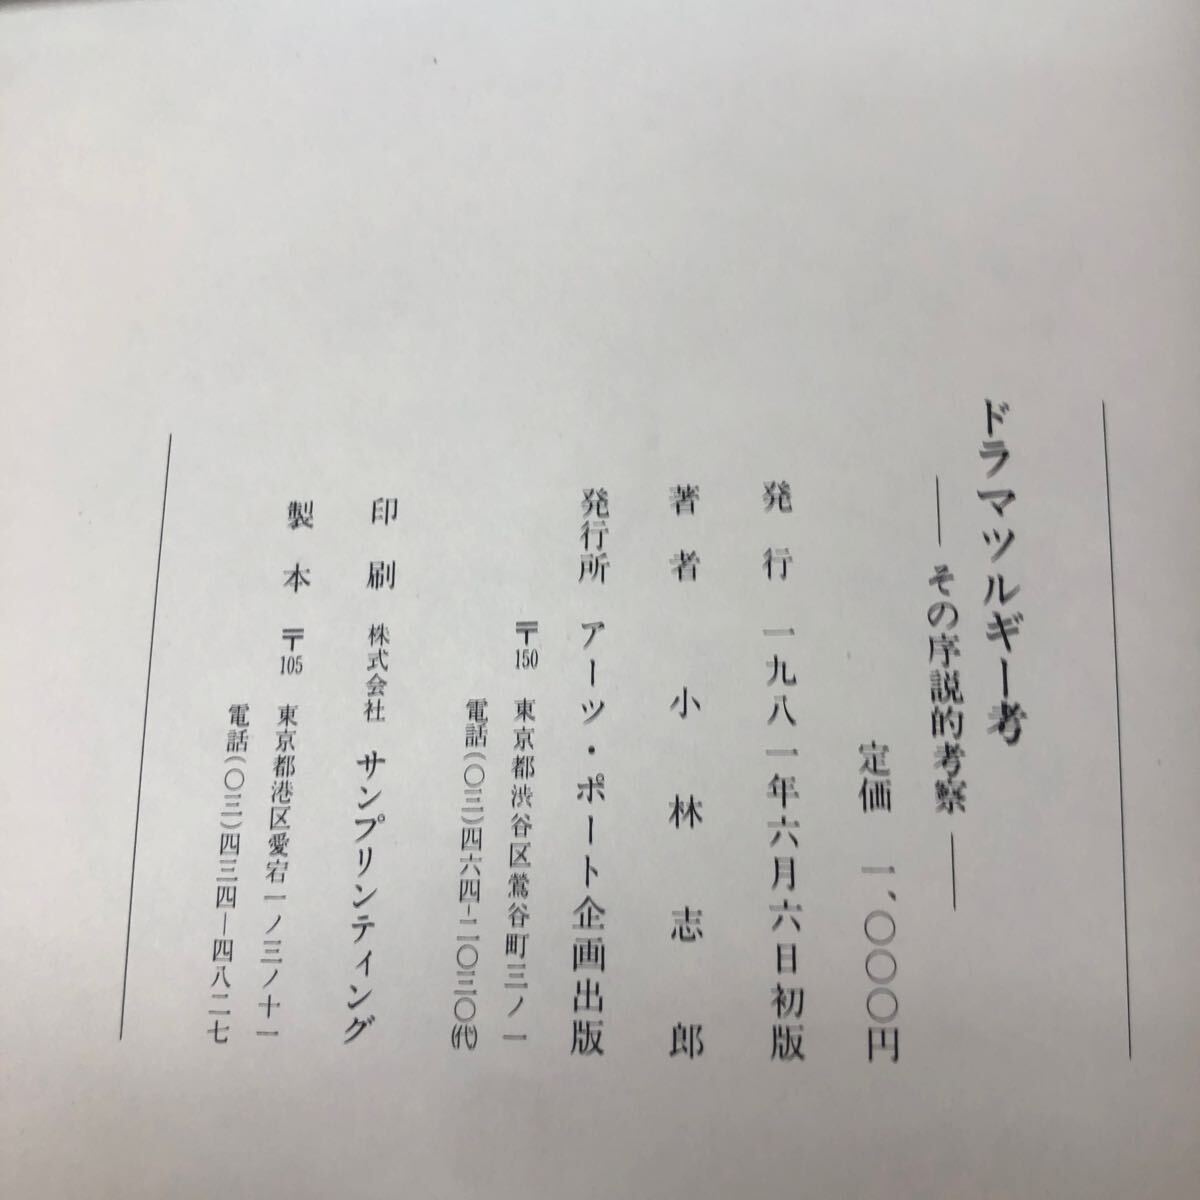 ドラマツルギー考
―その序説的考察―
定価 一、〇〇〇円
発行 一九八一年六月六日初版
著者 小林志郎
発行所 アーツ・ポート企画出版
〒150 東京都渋谷区鶯谷町三ノ一
電話(〇三)四六四-二〇三〇(代)
印刷 株式会社 サンプリンティング
製本 〒105 東京都港区愛宕一ノ三ノ十一
電話(〇三)四三四―四八二七